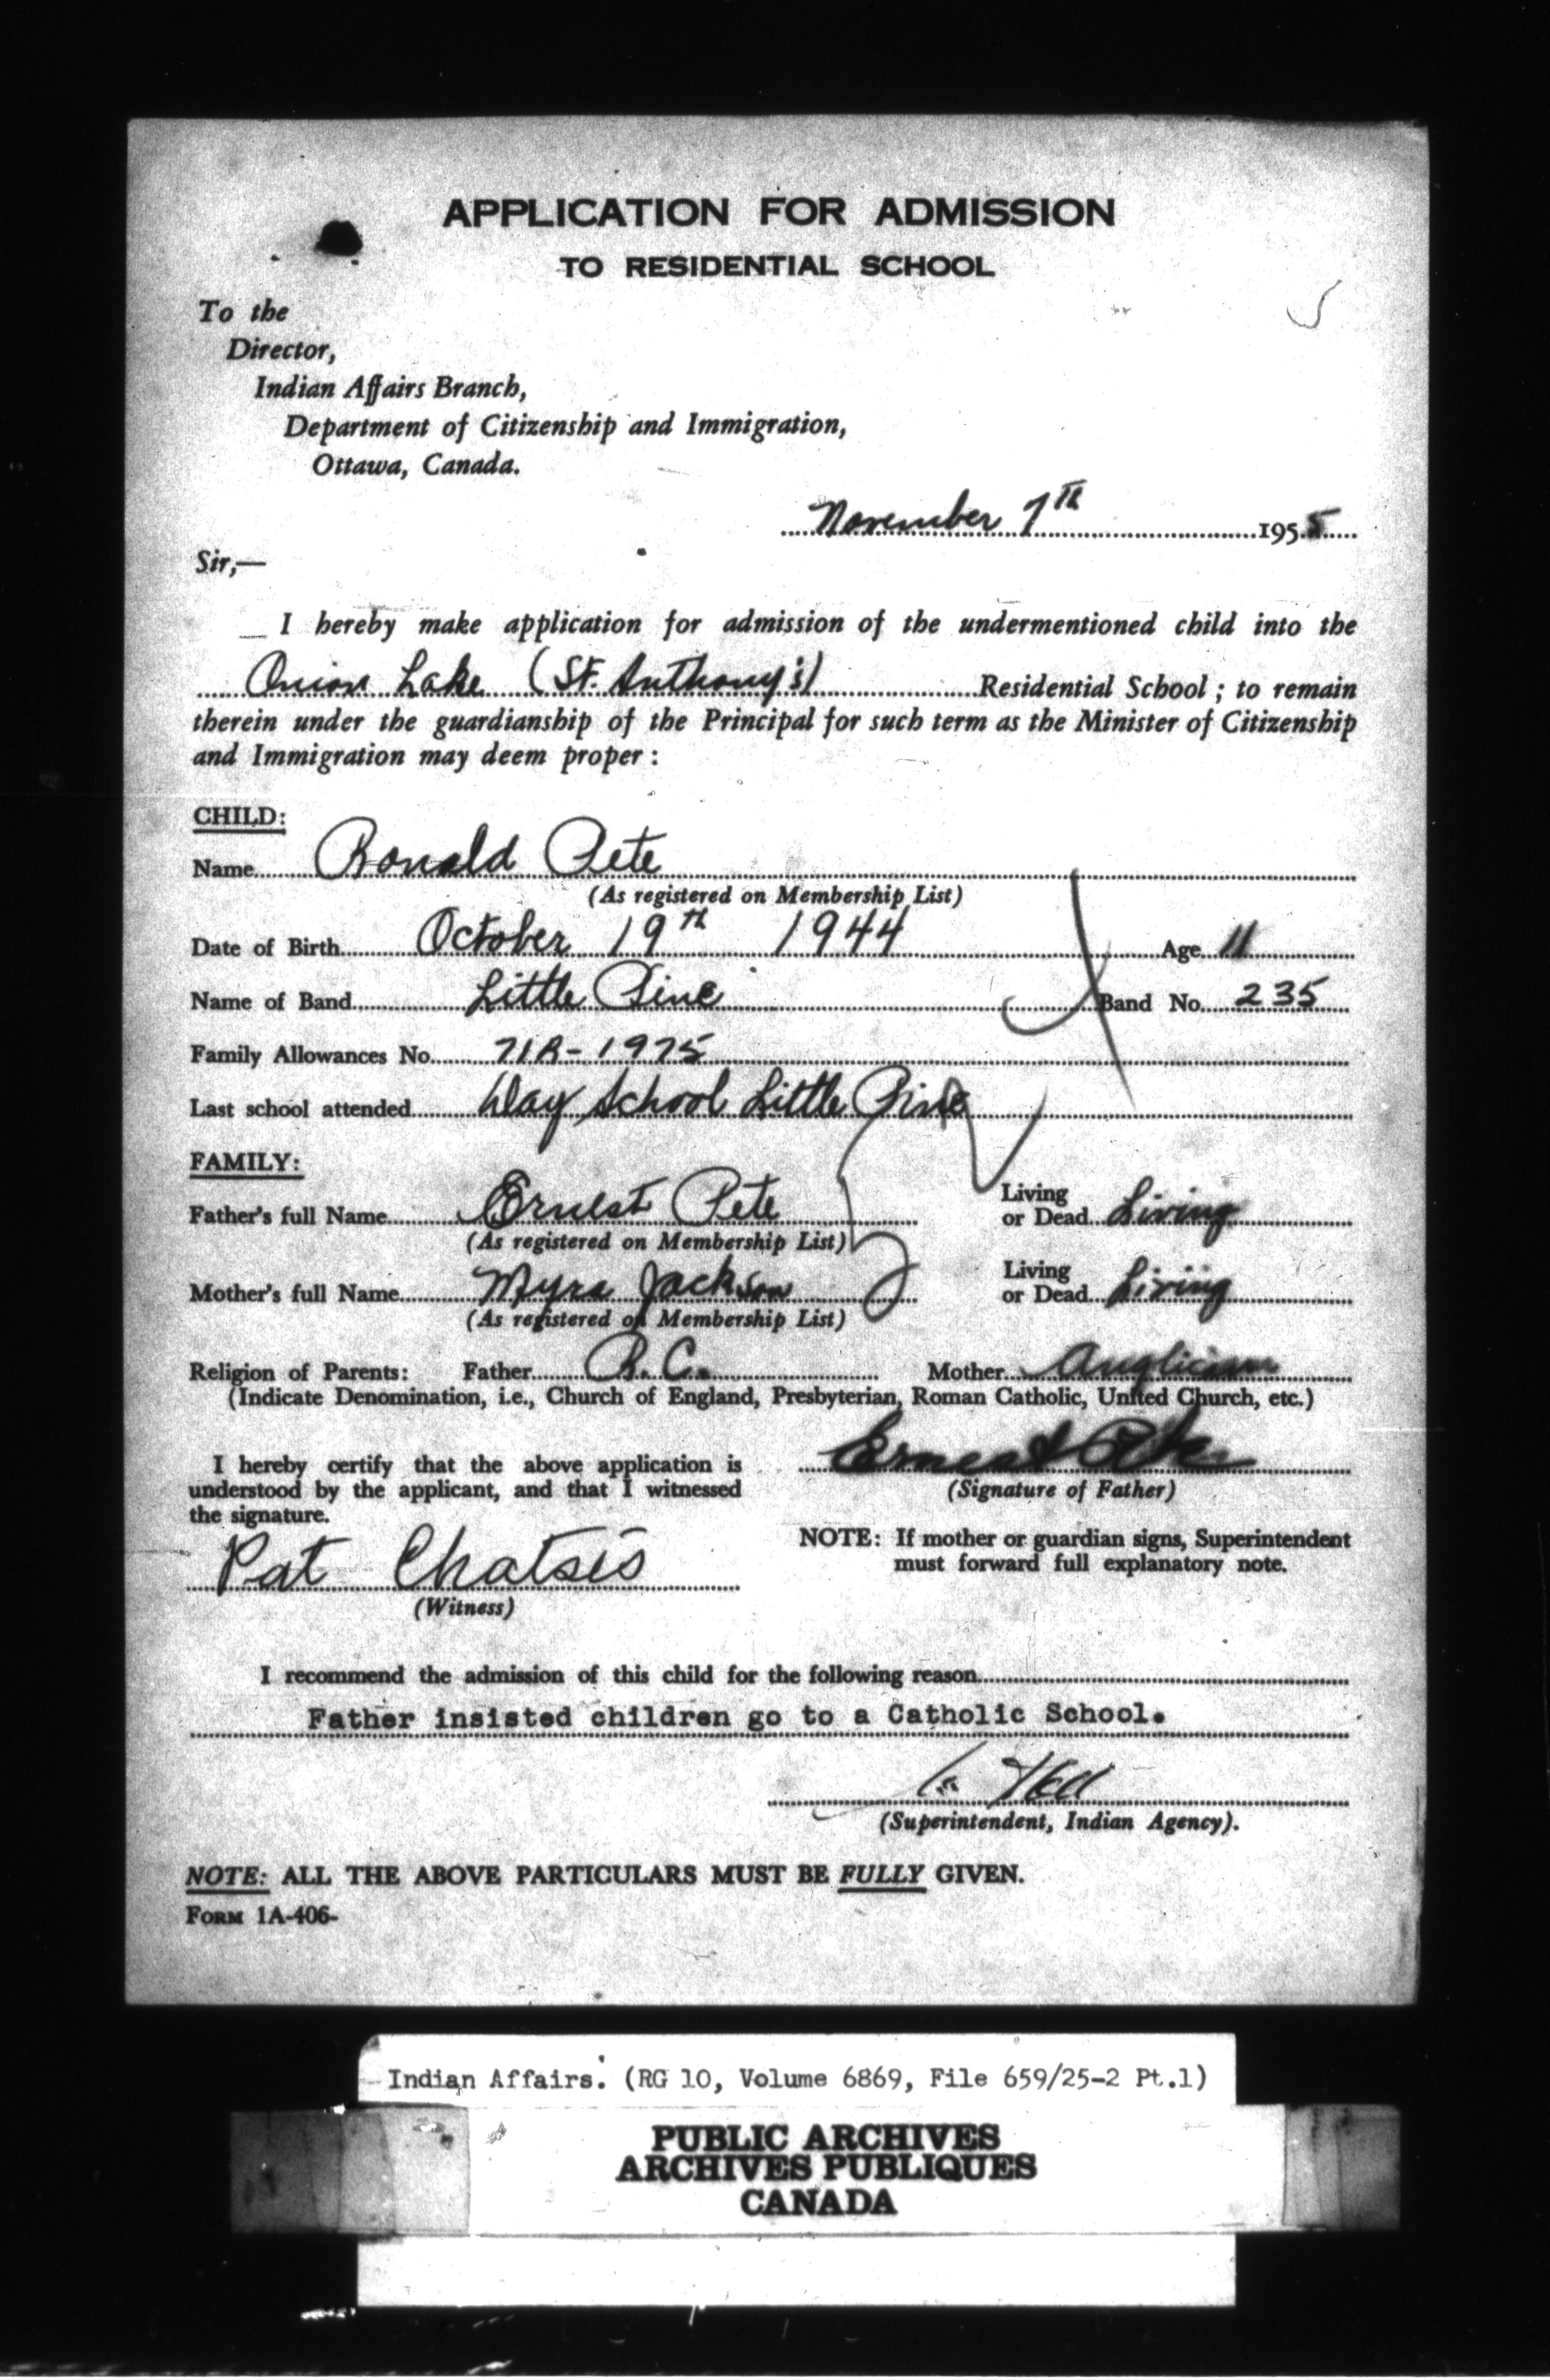 APPLICATION FOR ADMISSION
TO RESIDENTIAL SCHOOL
To the
Director,
Indian Affairs Branch,
Department of Citizenship and Immigration,
Ottawa, Canada.
November 7th 1955
Sir,—
I hereby make application for admission of the undermentioned child into the
Onion Lake (St. Anthony's) Residential School; to remain
therein under the guardianship of the Principal for such term as the Minister of Citizenship
and Immigration may deem proper:
CHILD:
Name Ronald Pete
(As registered on Membership List)
Date of Birth October 19th 1944 Age 11
Name of Band Little Pine Band No. 235
Family Allowances No. 71R-1975
Last school attended Day School Little Pine
FAMILY:
Father's full Name Ernest Pete Living or Dead Living
(As registered on Membership List)
Mother's full Name Myra Jackson Living or Dead Living
(As registered on Membership List)
Religion of Parents: Father R.C. Mother Anglican
(Indicate Denomination, i.e., Church of England, Presbyterian, Roman Catholic, United Church, etc.)
I hereby certify that the above application is
understood by the applicant, and that I witnessed
the signature.
Ernest Pete
(Signature of Father)
Pat Chatsis
(Witness)
NOTE: If mother or guardian signs, Superintendent
must forward full explanatory note.
I recommend the admission of this child for the following reason
Father insisted children go to a Catholic School.
(Superintendent, Indian Agency).
NOTE: ALL THE ABOVE PARTICULARS MUST BE FULLY GIVEN.
FORM 1A-406-
Indian Affairs. (RG 10, Volume 6869, File 659/25-2 Pt.1)
PUBLIC ARCHIVES
ARCHIVES PUBLIQUES
CANADA